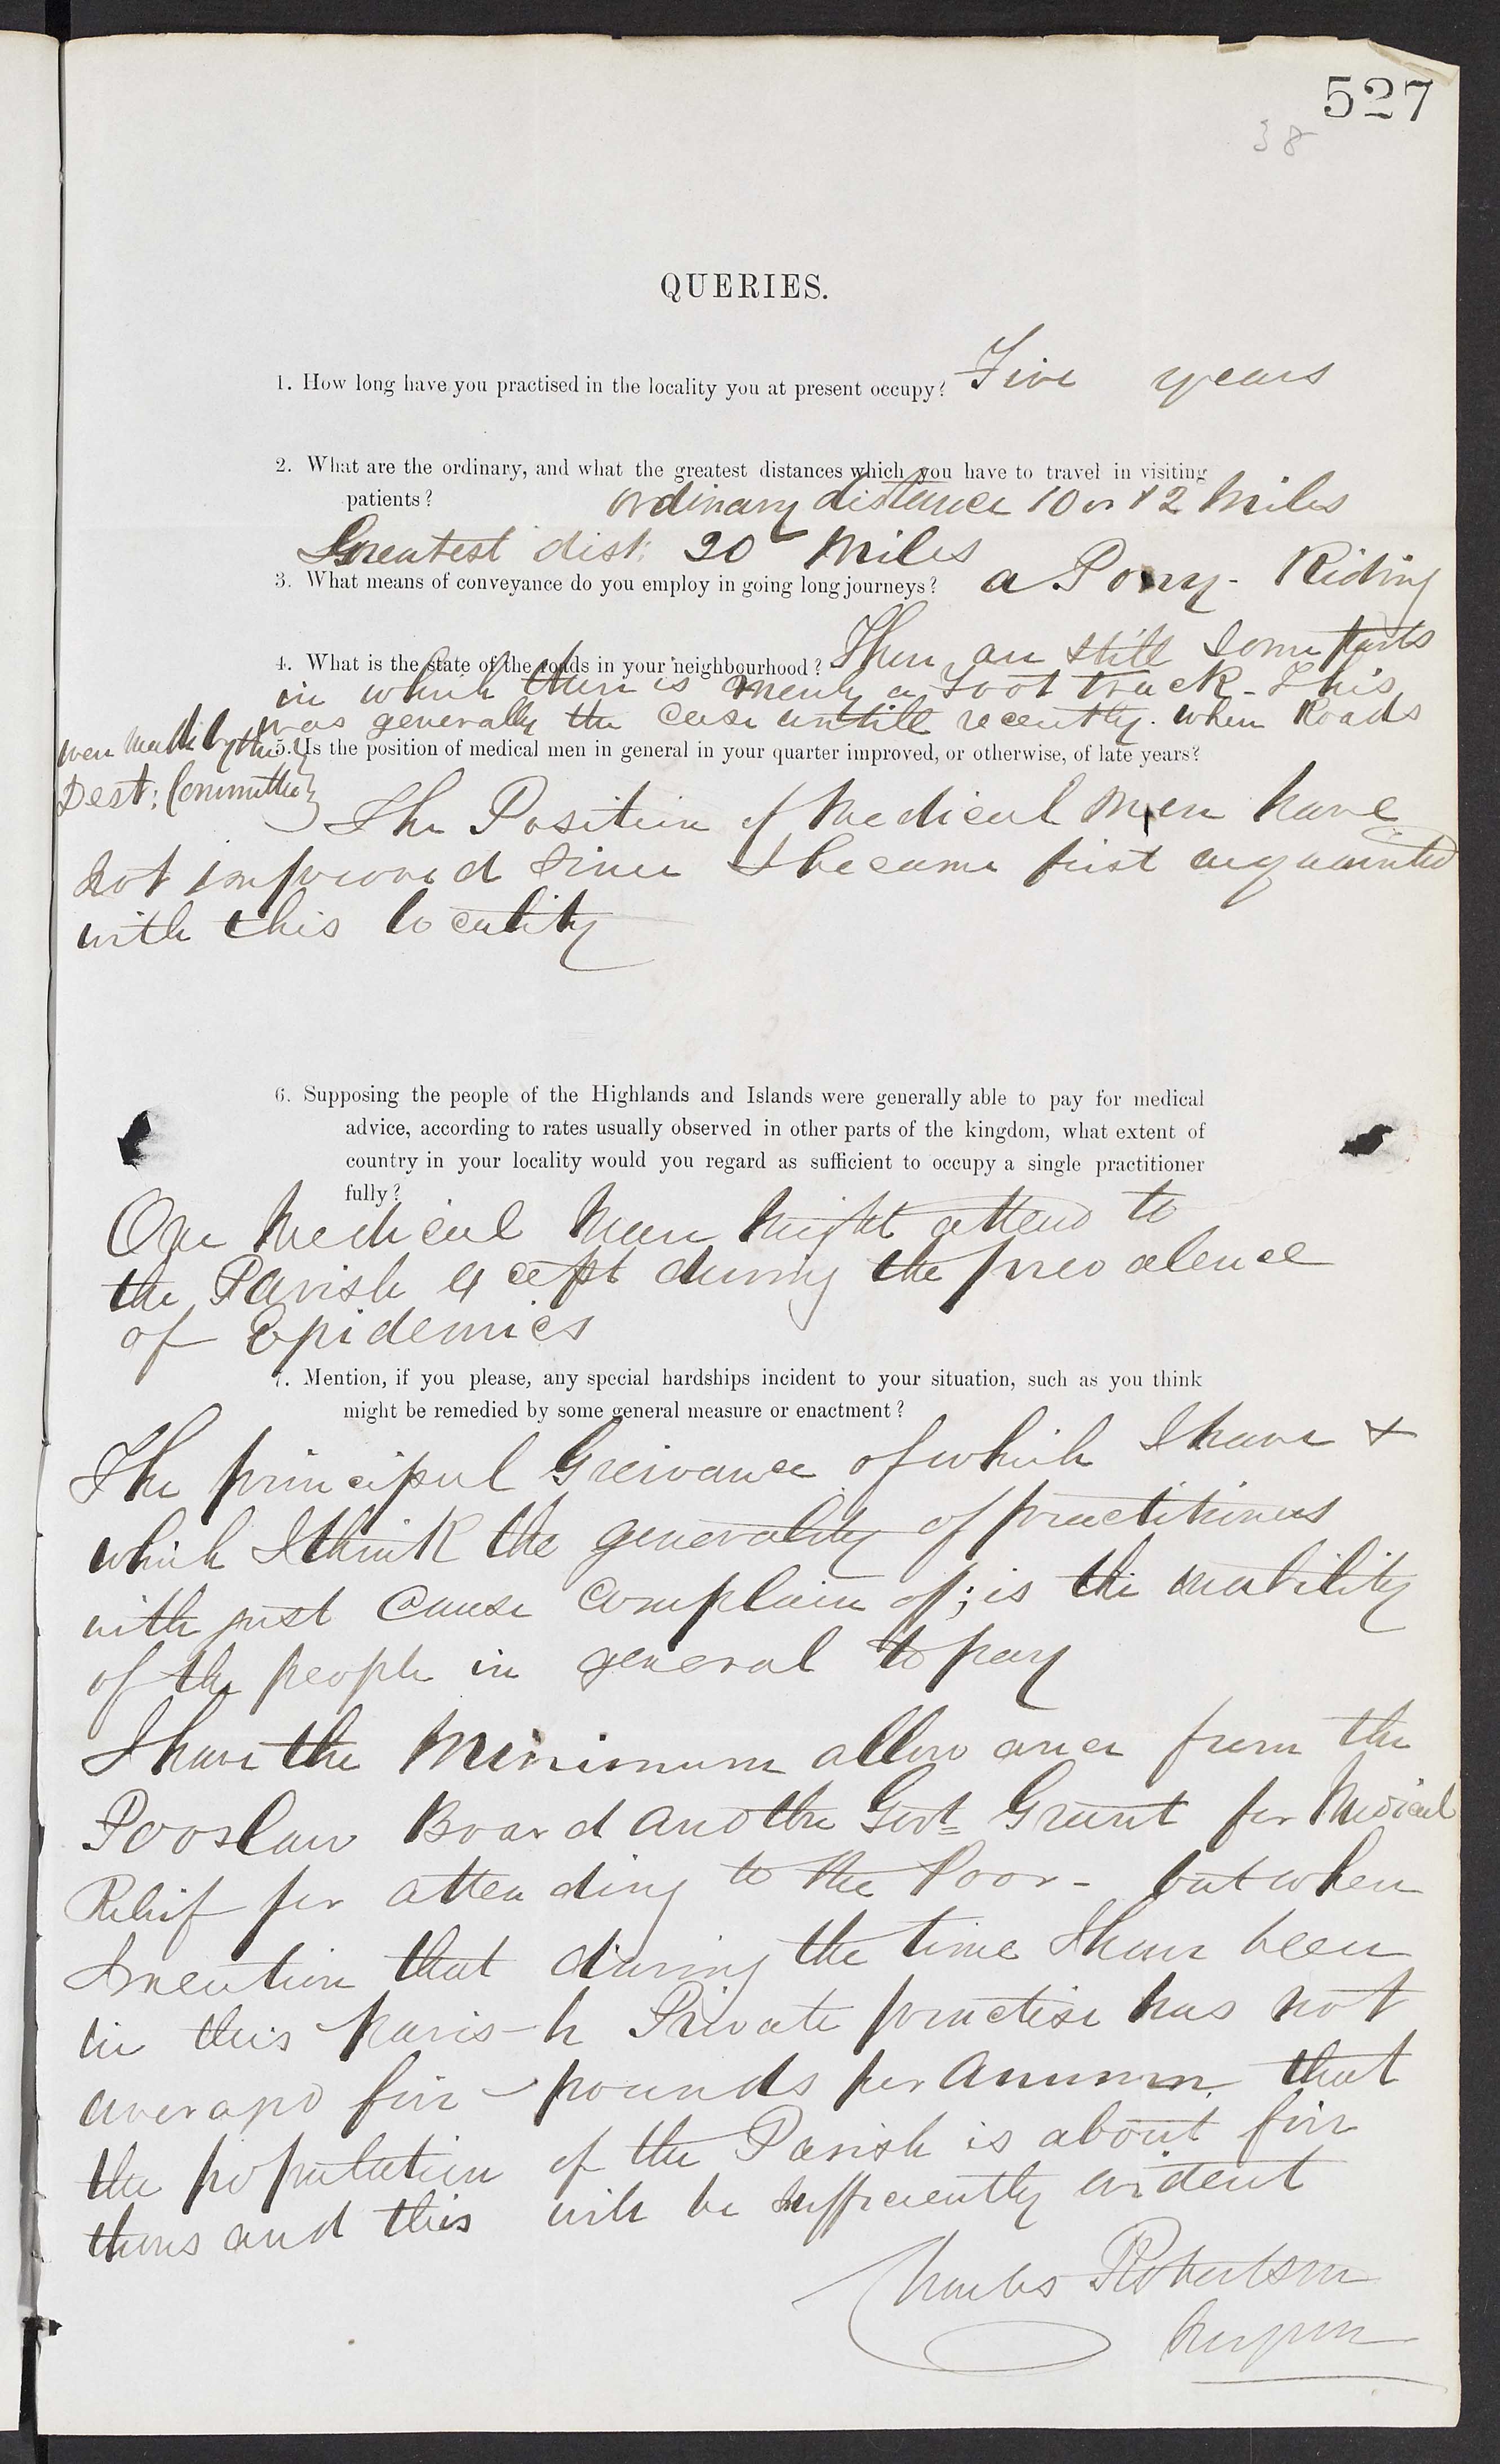 527
38
QUERIES.
1. How long have you practised in the locality you at present occupy? Five years
2. What are the ordinary, and what the greatest distances which you have to travel in visiting
patients? ordinary distance 10 or 12 Miles
Greatest dist: 20 Miles
3. What means of conveyance do you employ in going long journeys? a Pony - Riding
4. What is the state of the roads in your neighbourhood? There are still some parts
in which there is merely a Foot track - This
was generally the case untill recently. when Roads
were made by the
Dest: Committee
5. Is the position of medical men in general in your quarter improved, or otherwise, of late years?
The Position of Medical Men have
not improved since I became first acquainted
with this locality
6. Supposing the people of the Highlands and Islands were generally able to pay for medical
advice, according to rates usually observed in other parts of the kingdom, what extent of
country in your locality would you regard as sufficient to occupy a single practitioner
fully?
One Medical Man might attend to
the Parish except during the prevalence
of Epidemics
7. Mention, if you please, any special hardships incident to your situation, such as you think
might be remedied by some general measure or enactment?
The principal Greivance of which I have &
which I think the generality of practitioners
with just cause complain of; is the inability
of the people in general to pay
I have the Minimum allowance from the
Poorlaw Board and the Govt Grant for Medical
Relief for attending to the Poor - but when
I mention that during the time I have been
in this Parish Private practise has not
averaged five pounds per Annum that
the population of the Parish is about five
thousand this will be sufficiently evident
Charles Robertson
Surgeon